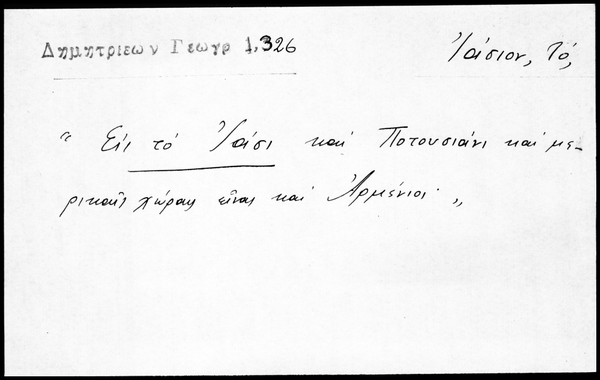 Δημητριεων Γεωγρ 1,326
Ἰάσιον, τό,
" Εἰς τό Ἰάσι καί Ποτουσιάνι καί με-
ρικαῖς χώραις εἶναι καί Ἀρμένιοι. "